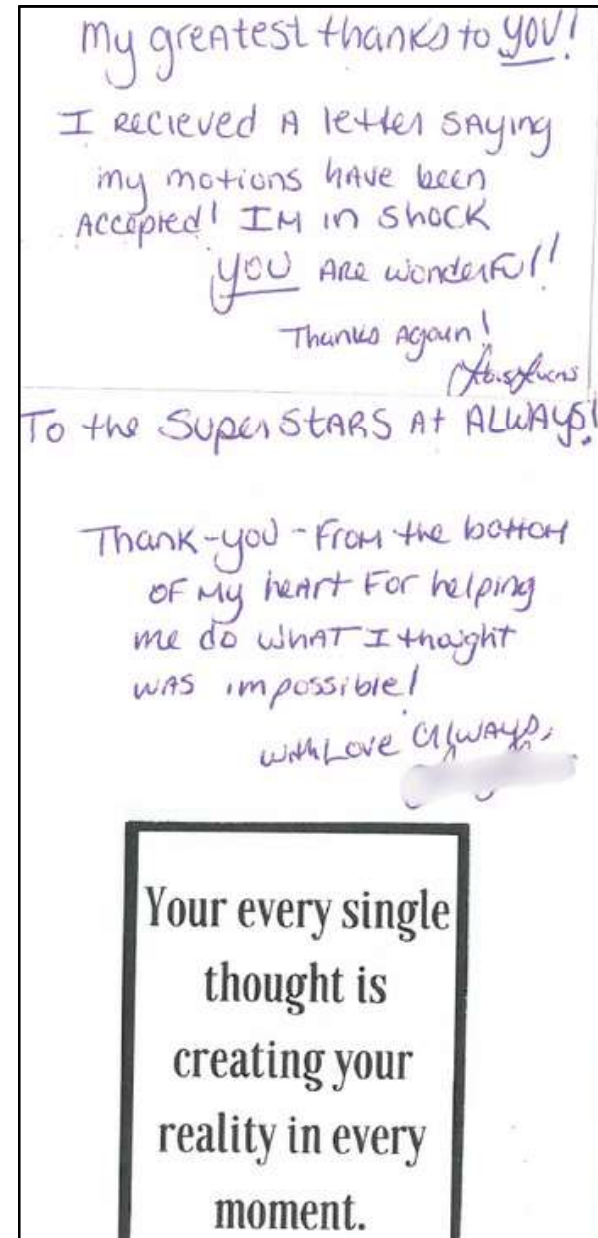 My greatest thanks to you!
I recieved a letter saying
my motions have been
accepted! Im in shock
you are wonderful!
Thanks again!
To the Superstars at ALWAYS!
Thank-you - From the bottom
of my heart For helping
me do what I thought
was impossible!
with Love Always,
Your every single
thought is
creating your
reality in every
moment.